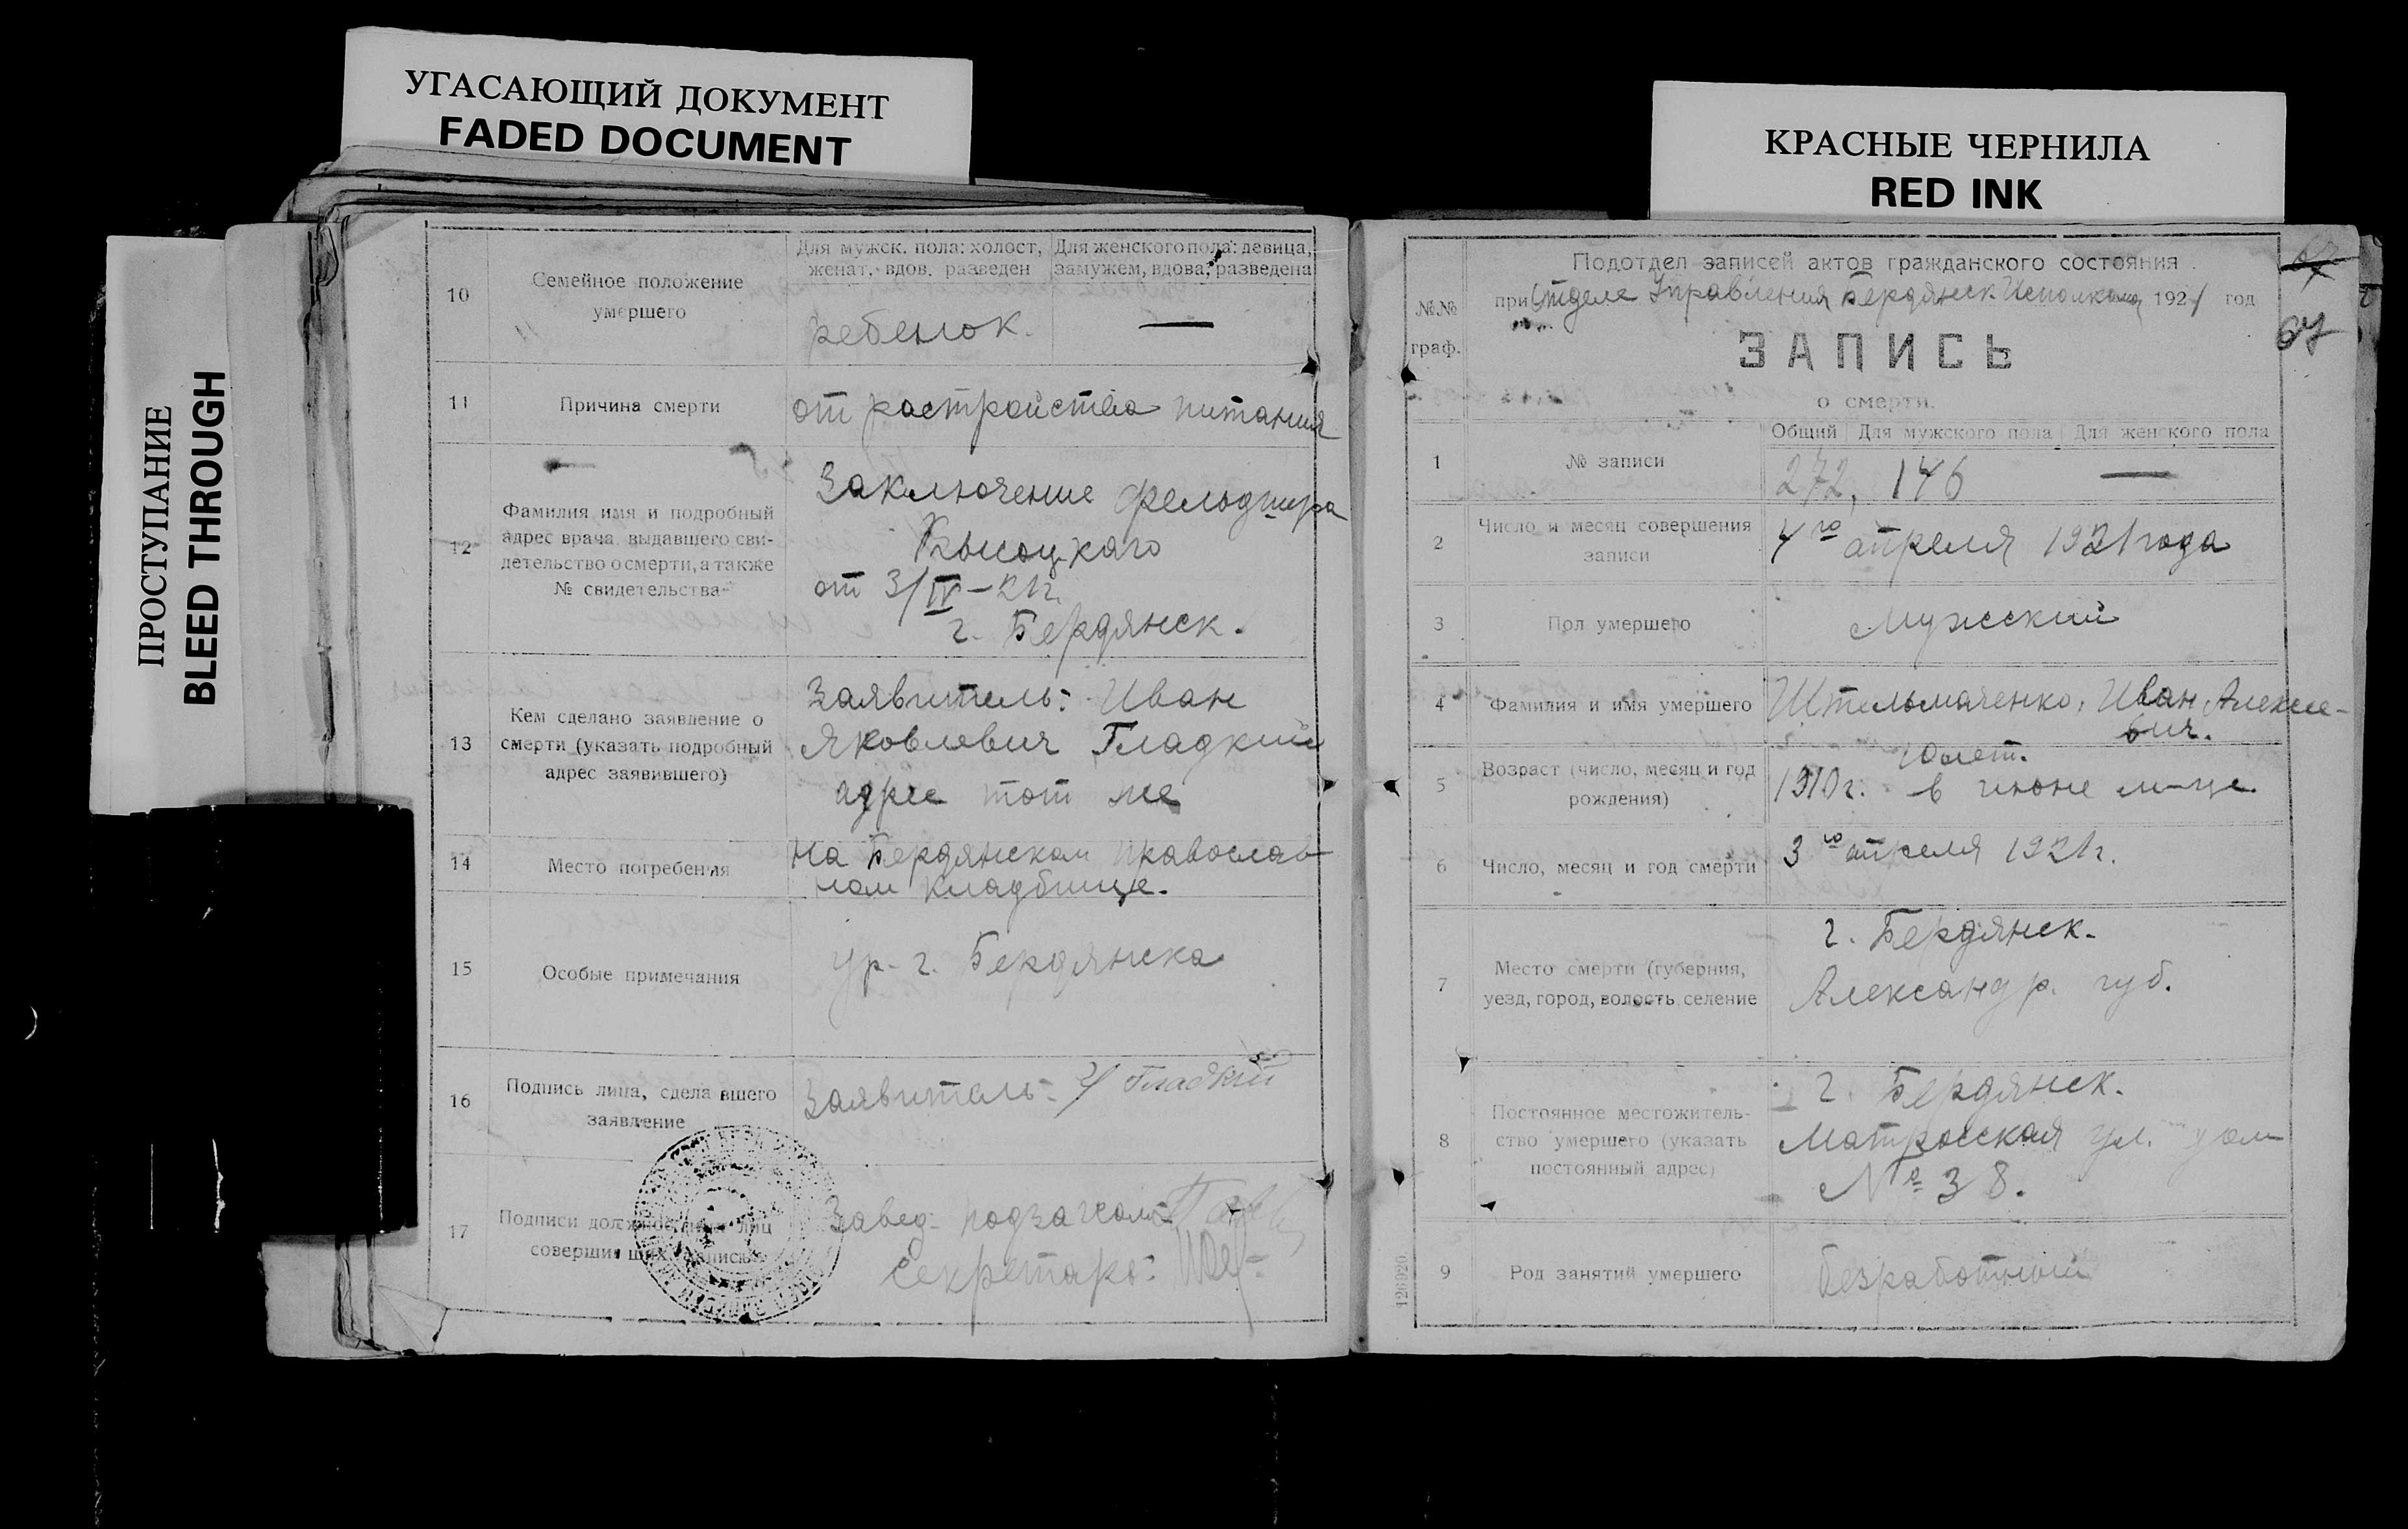 УГАСАЮЩИЙ ДОКУМЕНТ
FADED DOCUMENT
КРАСНЫЕ ЧЕРНИЛА
RED INK
ПРОСТУПАНИЕ
BLEED THROUGH
10
Семейное положение
умершего
Для мужск. пола: холост,
женат, вдов, разведен
Для женского пола: девица,
замужем, вдова, разведена
ребенок. —
11
Причина смерти
от растройства питания
12
Фамилия, имя и подробный
адрес врача, выдавшего сви-
детельство о смерти, а также
№ свидетельства
Заключение фельдшера
от 3/IV-21г.
г. Бердянск.
13
Кем сделано заявление о
смерти (указать подробный
адрес заявившего)
Заявитель: Иван
Яковлевич Гладкий
адрес тот же
14
Место погребения
на Бердянском православ-
ном кладбище.
15
Особые примечания
ур. г. Бердянска
16
Подпись лица, сделавшего
заявление
Заявитель: Гладкий
17
Подписи должностных лиц
совершивших запись
Завед.
Секретарь:
№№
граф.
Подотдел записей актов гражданского состояния
при Отделе Управления Бердянск. Исполкома 1921 год
67
ЗАПИСЬ
о смерти.
1
№ записи
Общий Для мужского пола Для женского пола
272, 146 —
2
Число и месяц совершения
записи
4го апреля 1921 года
3
Пол умершего
Мужский
4
Фамилия и имя умершего
Штельмаченко, Иван Алексее-
вич.
5
Возраст (число, месяц и год
рождения)
10 лет.
1910г. в июне м-це.
6
Число, месяц и год смерти
3го апреля 1921г.
7
Место смерти (губерния,
уезд, город, волость селение
г. Бердянск.
Александр. губ.
8
Постоянное местожитель-
ство умершего (указать
постоянный адрес)
г. Бердянск.
Матросская ул. дом
№ 38.
9
Род занятий умершего
безработный
126920